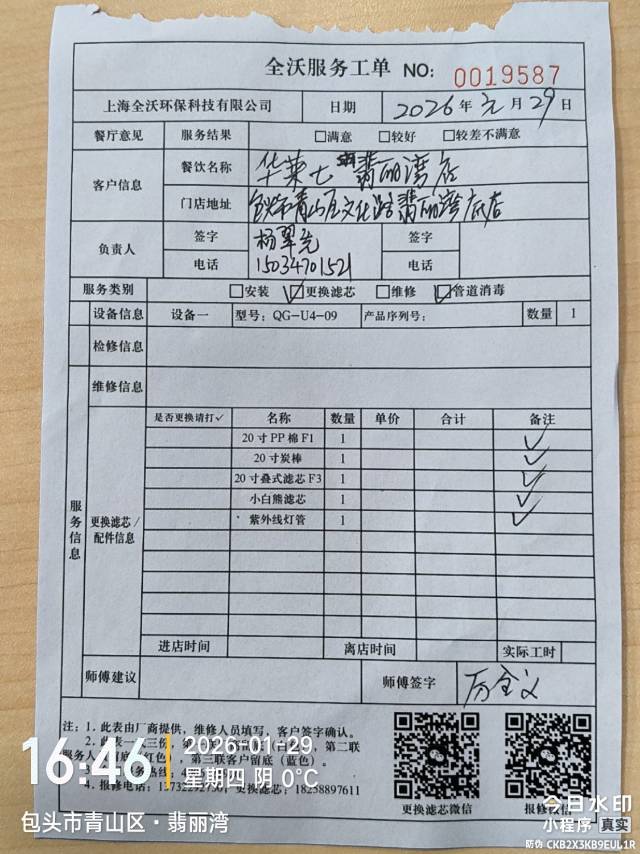 全沃服务工单 NO: 0019587
上海全沃环保科技有限公司 日期 2026年元月29日
餐厅意见 服务结果 □满意 □较好 □较差不满意
客户信息 餐饮名称 华莱士翡丽湾店
门店地址 包头市青山区文化路翡丽湾底店
负责人 签字 杨翠先 签字
电话 15034701521 电话
服务类别 □安装 ☑更换滤芯 □维修 ☑管道消毒
设备信息 设备一 型号: QG-U4-09 产品序列号: 数量 1
检修信息
维修信息
服务信息
更换滤芯/配件信息
是否更换请打✓ 名称 数量 单价 合计 备注
20寸PP棉F1 1 ✓
20寸炭棒 1 ✓
20寸叠式滤芯F3 1 ✓
小白熊滤芯 1 ✓
紫外线灯管 1 ✓
进店时间 离店时间 实际工时
师傅建议 师傅签字
注: 1. 此表由厂商提供, 维修人员填写, 客户签字确认。
2. 此表一式三份, 第二联
服务人 (红色) 第三联客户留底 (蓝色)。
4. 报修电话: 更换滤芯: 18258897611
更换滤芯微信 报修微信
16:46
2026-01-29
星期四 阴 0°C
包头市青山区·翡丽湾
今日水印
小程序 真实
防伪 CKB2X3KB9EUL1R